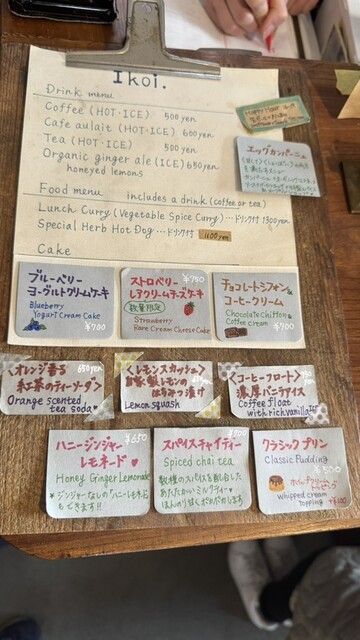 Ikoi.
Drink menu
Coffee (HOT・ICE) 500 yen
Cafe aulait (HOT・ICE) 600 yen
Tea (HOT・ICE) 500 yen
Organic ginger ale (ICE) 650 yen
honeyed lemons
Food menu includes a drink (coffee or tea)
Lunch Curry (Vegetable Spice Curry) … ドリンク付 1300 yen
Special Herb Hot Dog … ドリンク付 1100 yen
Cake
Happy Hour
エッグカンパーニュ
ブルーベリー
ヨーグルトクリームケーキ
Blueberry
Yogurt Cream Cake
¥700
¥750
ストロベリー
レアクリームチーズケーキ
数量限定
Strawberry
Rare Cream Cheese Cake
チョコレートシフォン&
コーヒークリーム
Chocolate Chiffon &
Coffee cream
¥700
〈オレンジ香る 650yen
紅茶のティーソーダ〉
Orange scented
tea soda
〈レモンスカッシュ〉
自家製レモンの
はちみつ漬け
Lemon squash
〈コーヒーフロート〉
濃厚バニラアイス
Coffee float
with rich vanilla
ハニージンジャー ¥650
レモネード
Honey Ginger Lemonade
＊ジンジャーなしの「ハニーレモネード」
もできます!!
スパイスチャイティー
Spiced chai tea
数種のスパイスを配合した
あたたかいミルクティー
ほんのり甘くポカポカします
クラシックプリン
Classic Pudding
¥500
ホイップクリーム
トッピング
Whipped cream
topping +¥100